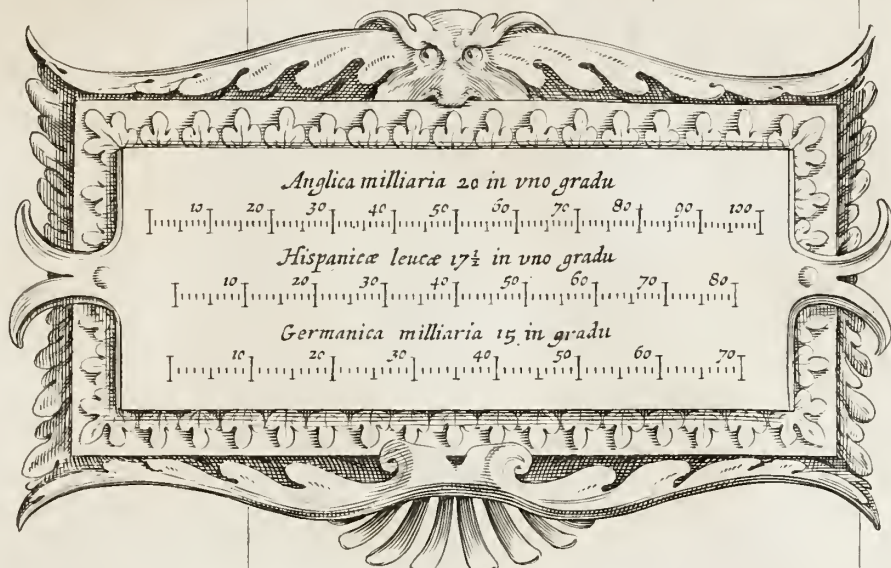 Anglica milliaria 20 in vno gradu
10 20 30 40 50 60 70 80 90 100
Hispanicæ leucæ 17½ in vno gradu
10 20 30 40 50 60 70 80
Germanica milliaria 15 in gradu
10 20 30 40 50 60 70